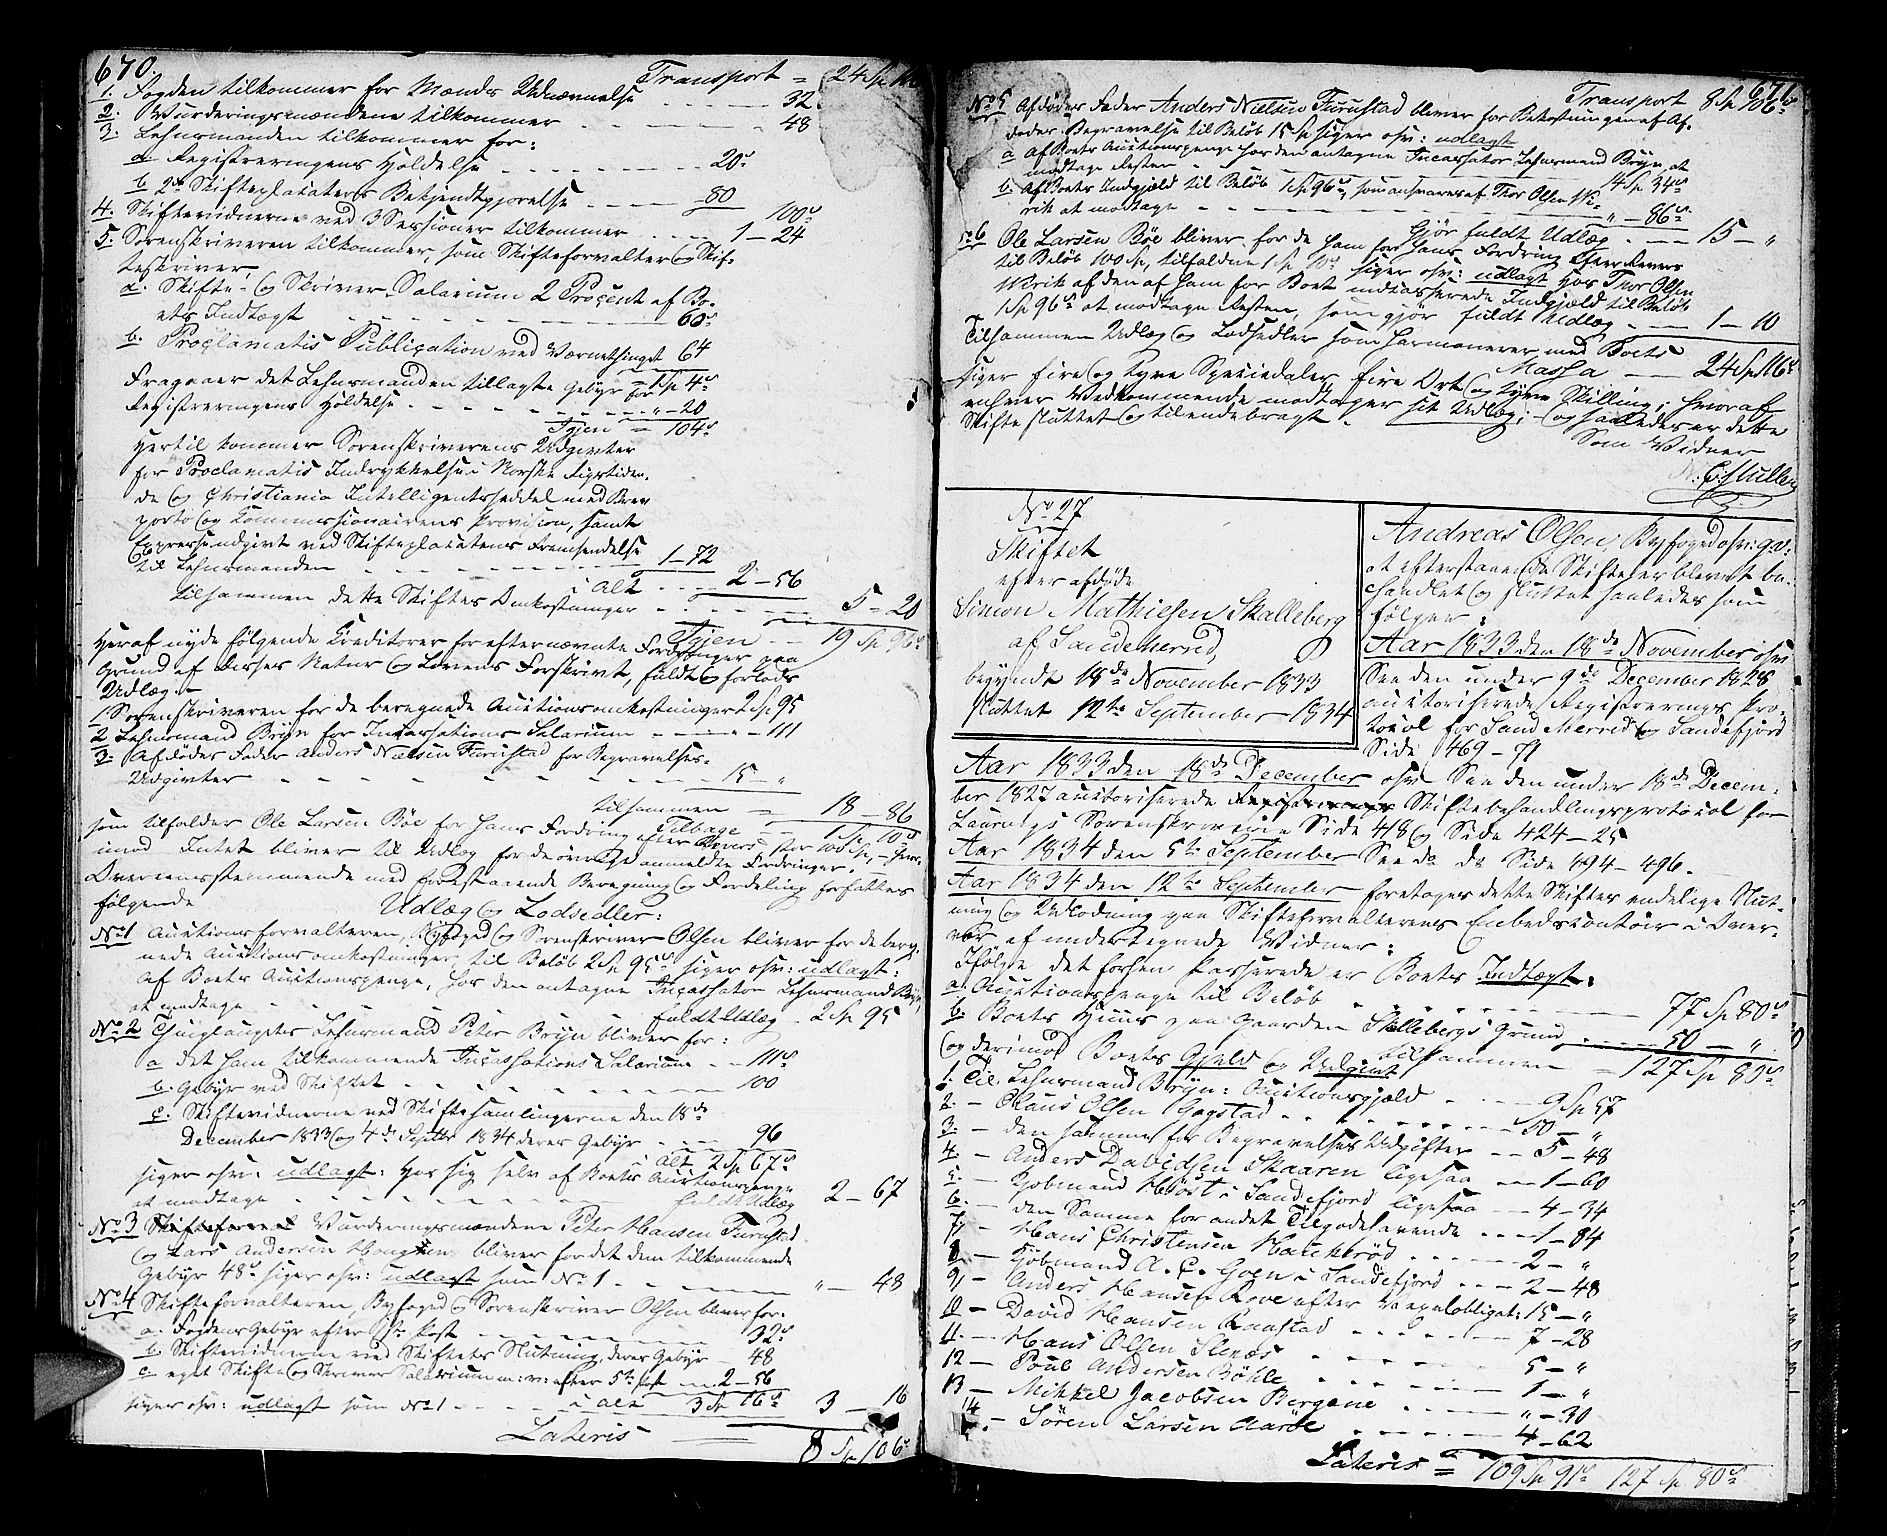 670.
Transport = 24 Sp
1. Fogden tilkommer for Mænds Udnævnelse - - - 32
2. Vurderingsmændene tilkommer - - - 48
3. Lehnsmanden tilkommer for:
a. Registreringens Holdelse - - - 20s
b. 2de Skifteplacaters Bekjendtgjørelse - - - 80
100s
4. Skiftevidnerne ved 3 Sessioner tilkommer - - - 1 - 24
5. Sorenskriveren tilkommer, som Skifteforvalter og Skif-
teskriver,
a. Skifte- og Skriver Salarium 2 Procent af Bo-
ets Indtægt - - - 60s
b. Proclamatis Publication ved Værnethinget 64
= 1 Sp 4s
Fragaaer det Lehnsmanden tillagte Gebyr for
Registreringens Holdelse - - - " - 20
Igjen = 104s
Hertil kommer Sorenskriverens Udgivter
for Proclamatis Indrykkelse i Norske Rigstiden-
de og Christiania Intelligentsseddel med Brev
porto og Kommissionairens Provision, samt
Expresse udgivt ved Skifteplacatens Fremsendelse
til Lehnsmanden - - - 1 - 72
i Alt - - - 2 - 56
tilsammen dette Skiftes Omkostninger - - - 5 - 20
Igjen - - 19 Sp 96s
Heraf nyde følgende Kreditorer for efternævnte Fordringer paa
Grund af disses Natur og Lovens Forskrivt, fuldt og forlods
Udlæg -
1 Sorenskriveren for de beregnede Auctionsomkostninger 2 Sp 95
2 Lehnsmand Bryn for Incassations Salarium - - - " - 111
3. Afdødes Fader Anders Nielsen Furustad for Begravelses-
Udgivter - - - 15 - "
tilsammen = 18 - 86
Tilbage - - 1 Sp 10s
som tilfalder Ole Larsen Bøe for hans Fordring efter Revers stor 100 Sp, - hvor-
imod Intet bliver til Udlæg for de øvrige anmeldte Fordringer.
Overeensstemmende med forestaaende Beregning og Fordeling forfattes
følgende
Udlæg og Lodsedler:
No 1 Auctionsforvalteren, Byfoged og Sorenskriver Olsen bliver for de bereg-
nede Auctionsomkostninger, til Beløb 2 Sp 95s siger osv: udlagt:
Af Boets Auctionspenge, hos den antagne Incassator Lehnsmand Bryn,
at modtage - - - fuldt Udlæg - 2 Sp 95
No 2 Thinglaugets Lehnsmand Peter Bryn bliver for:
a det ham tilkommende Incassations Salarium - - 111s
b. Gebyr ved Skiftet - - - 100
c. Skiftevidnerne ved Skiftesamlingerne den 18de
December 1833 og 4de Septbr 1834 deres Gebyr - - - 96
i Alt 2 Sp 67s
siger osv: udlagt: Hos sig selv af Boets Auctionspenge
at modtage - - - fuldt Udlæg 2 - 67
No 3 Vurderingsmændene Peter Hansen Furustad
og Lars Andersen Haugen bliver for det dem tilkommende
Gebyr 48s siger osv: udlagt som No 1 - - - " - 48
No 4 Skifteforvalteren, Byfoged og Sorenskriver Olsen bliver for:
a. Fogdens Gebyr efter 1ste Post - - - 32s
b. Skiftevidnerne ved Skiftets Slutning, deres Gebyr - 48
c. eget Skifte og Skriver Salarium m: v: efter 5te Post - - 2 - 56
i Alt 3 Sp 16s
siger osv: udlagt som No 1 - - - 3 - 16
Lateris = 8 Sp 106s
671.
Transport 8 Sp 106s
No 5 Afdødes Fader Anders Nielsen Furustad bliver for Bekostningen af Af-
dødes Begravelse til Beløb 15 Sp siger osv: udlagt
a Af Boets Auctionspenge hos den antagne Incassator Lehnsmand Bryn, at
modtage Resten - - - 14 Sp 34s
b. Af Boets Indgjæld til Beløb 1 Sp 96s, som ansvares af Thor Olsen
at modtage - - - " - 86s
Gjør fuldt Udlæg - - - 15 - "
No 6 Ole Larsen Bøe bliver for de ham for hans Fordring efter Revers
til Beløb 100 Sp, tilfaldne 1 Sp 10s siger osv: udlagt Hos Thor Olsen
af den af ham for Boet indcasserede Indgjæld til Beløb
1 Sp 96s at modtage Resten, som gjør fuldt Udlæg - - - 1 - 10
Tilsammen Udlæg og Lodsedler som harmonerer med Boets
Massa - - - 24 Sp 116s
siger fire og tyve Speciedaler fire Ort og tyve Skilling; hvoraf
enhver Vedkommende modtager sit Udlæg; - og saaledes er dette
Skifte sluttet og tilendebragt -
Som Vidner
No 27
Skiftet
efter afdøde
Simon Mathiesen Skalleberg
af Sandeherred,
begyndt 18de November 1833
sluttet 12te September 1834
Andreas Olsen, Byfoged osv: gv:
at efterstaaende Skifte er blevet be-
handlet og sluttet saaledes som
følger:
Aar 1833 den 18de November osv
See den under 9de December 1828
auctoriserede Registrerings Pro-
tocol for Sandeherred og Sandefjord
Side 469 - 71
Aar 1833 den 18de December osv See den under 18de Decem-
ber 1827 auctoriserede Skiftebehandlingsprotocol for
Laurvigs Sorenskriverie Side 418 og Side 424 - 25
Aar 1834 den 5te September See do do Side 494 - 496.
Aar 1834 den 12te September foretoges dette Skiftes endelige Slut-
ning og Udlodning paa Skifteforvalterens Embedscontoir i Over-
vær af undertegnede Vidner:
Ifølge det forhen Passerede er Boets Indtægt:
a. Auctionspenge til Beløb - - - 77 Sp 80s
b. Boets Huus paa Gaarden Skallebergs Grund - - - 50 - "
tilsammen = 127 Sp 80s
og derimod Boets Gjæld og Udgivt
1. Til Lehnsmand Bryn: Auctionsgjæld - - - 9 Sp 57
2. - Claus Olsen Gogstad - - - 50 - "
3. - den samme for Begravelses Udgifter - - 5 - 48
4. - Anders Davidsen Skaaren ligesaa - - 1 - 60
5. - Kjøbmand Høst i Sandefjord ligesaa - - 4 - 34
6. - den Samme for andet Tilgodehavende - - - 1 - 84
7. - Hans Christensen Haukerød - - - 2 - "
8. - Kjøbmand A. C. Goen i Sandefjord - - - 2 - 48
9. - Anders Hansen Rove efter Vexelobligat: 15 - "
10 - David Hansen Raastad - - - 7 - 28
11. - Hans Olsen Stenæs - - - 5 - "
12 - Poul Andersen Bøhle - - - 1 - "
13 - Mikkel Jacobsen Bergene - - - " - 30
14. - Søren Larsen Aarøe - - - 4 - 62
Lateris = 109 Sp 91s 127 Sp 80s